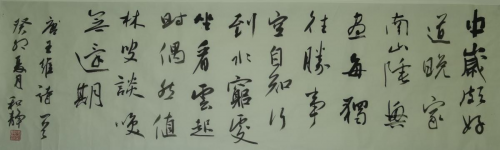 中歲頗好
道晚家
南山陲興
每獨
往勝事
空自知行
到水窮處
坐看雲起
時偶然值
林叟談咲
無還期
唐王維詩
癸卯夏月 和靜